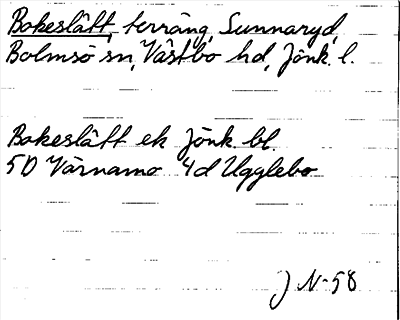 Bokeslätt, terräng, Sunnaryd,
Bolmsö sn, Västbo hd, Jönk. l.
Bokeslätt ek Jönk. bl.
5D Värnamo 4d Ugglebo
J N-58